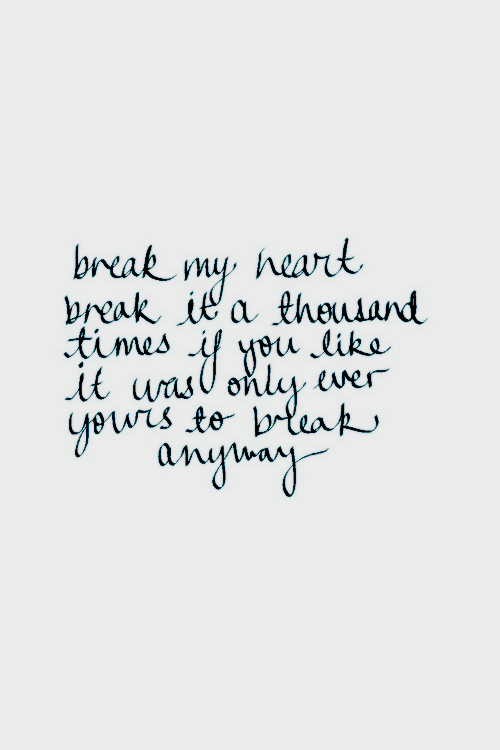 break my heart
break it a thousand
times if you like
it was only ever
yours to break
anyway